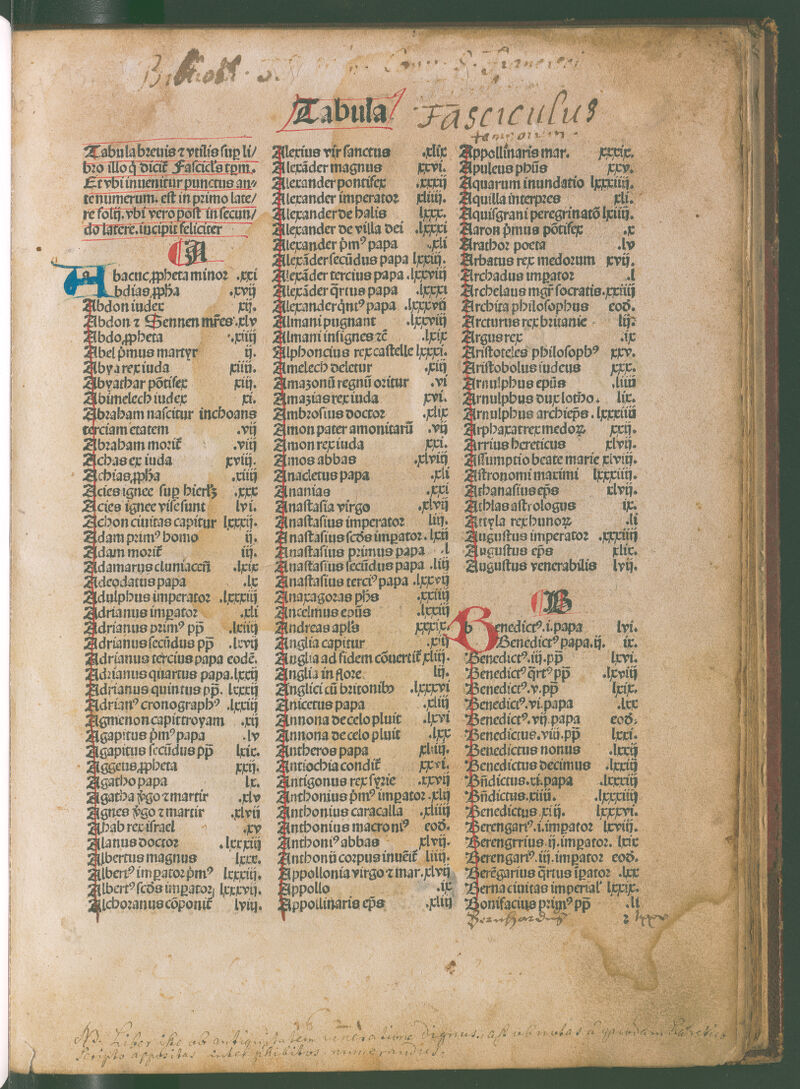 Tabula
Fasciculus
temporum
Tabula breuis ⁊ vtilis suꝑ li/
bro illo q̄ dicit᷑ Fascicl᷒s tꝑm.
Et vbi inuenitur punctus an⸗
te numerum. est in primo late/
re folij. vbi vero post in secun/
do latere. incipit feliciter
A
Abacuc ꝓpheta minor .xxi
Abdias ꝓpha .xvij
Abdon iudex xij.
Abdon ⁊ Sennen mr̄es .xlv
Abdo ꝓpheta .xiiij
Abel p̄mus martyr ij.
Abya rex iuda xiiii.
Abyathar pōtifex xiij.
Abimelech iudex xi.
Abraham nascitur inchoans
terciam etatem .vij
Abraham morit᷑ .viij
Achas ex iuda xviij.
Achias ꝓpha .xiiij
Acies ignee suꝑ hierl̄ꝫ .xxx
Acies ignee vise sunt lvi.
Achon ciuitas capitur lxxxij.
Adam prim᷒ homo ij.
Adam morit᷑ iij.
Adamarus cluniacen̄ .lxix
Adeodatus papa .lx
Adulphus imperator .lxxxiij
Adrianus imꝑator .xli
Adrianus prim᷒ pp̄ .lxiiij
Adrianus secūdus pp̄ .lxvij
Adrianus tercius papa eodē.
Adrianus quartus papa .lxxij
Adrianus quintus pp̄. lxxxij
Adrian᷒ cronograph᷒ .lxxiij
Agmenon capit troyam .xij
Agapitus p̄m᷒ papa .lv
Agapitus secūdus pp̄ lxix.
Aggeus ꝓpheta xxij.
Agatho papa lx.
Agatha v̄go ⁊ martir .xlv
Agnes v̄go ⁊ martir .xlvij
Ahab rex israel .xv
Alanus doctor .lxxxiij
Albertus magnus lxxx.
Albert᷒ imꝑator p̄m᷒ lxxxiij.
Albert᷒ scd̄s imꝑator lxxxvij.
Alchoranus cōponit᷑ lviij.
Alexius vir sanctus .xlix
Alexāder magnus xxvi.
Alexander pontifex .xxxij
Alexander imperator xliiij.
Alexander de halis lxxx.
Alexander de villa dei .lxxxi
Alexander p̄m᷒ papa .xli
Alexāder secūdus papa lxxij.
Alexāder tercius papa .lxxviij
Alexāder q̄rtus papa .lxxxi
Alexander qⁱnt᷒ papa .lxxxvij
Almani pugnant .lxxviij
Almani insignes ⁊c̄ .lxix
Alphoncius rex castelle lxxxi.
Amelech deletur .xiij
Amazonū regnū oritur .vi
Amazias rex iuda xvi.
Ambrosius doctor .xlix
Amon pater amonitarū .vij
Amon rex iuda xxi.
Amos abbas .xlviij
Anacletus papa .xli
Ananias .xxi
Anastasia virgo .xlvij
Anastasius imperator liij.
Anastasius scd̄s imꝑator .lxij
Anastasius primus papa .l
Anastasius secūdus papa .liij
Anastasius terci᷒ papa .lxxvij
Anaxagoras ph̄s .xxiiij
Ancelmus ep̄us .lxxiij
Andreas apl̄s .xxxix
Anglia capitur .xij
Anglia ad fidem cōuertit᷑ xliij.
Anglia in flore lij.
Anglici cū britonib᷒ .lxxxvi
Anicetus papa .xliij
Annona de celo pluit .lxvi
Annona de celo pluit .lxx
Antheros papa xliiij.
Antiochia condit᷑ .xxvi.
Antigonus rex syrie .xxvij
Anthonius p̄m᷒ imꝑator .xlij
Anthonius caracalla .xliiij
Anthonius macroni᷒ eod̄.
Anthoni᷒ abbas .xlvij
Anthonii corpus inuēit᷑ liiij.
Appollonia virgo ⁊ mar. xlvij
Appollo .ix
Appollinaris ep̄s .xliij
Appollinaris mar. .xxxix.
Apuleus ph̄us xxv.
Aquarum inundatio lxxxiiij.
Aquilla interpres xli.
Aquisgrani peregrinatō lxiiij.
Aaron p̄mus pōtifex .x
Arathor poeta .lv
Arbatus rex medorum xvij.
Archadus imꝑator .l
Archelaus mgr̄ socratis .xxiiij
Archita philosophus eod̄.
Arcturus rex britanie lij.
Argus rex .ix
Aristoteles philosoph᷒ xxv.
Aristobolus iudeus xxx.
Arnulphus ep̄us .liiij
Arnulphus dux lotho. lix.
Arnulphus archiep̄s .lxxxiiij
Arphaxat rex medoꝝ xxij.
Arrius hereticus xlvij.
Assumptio beate marie xlviij.
Astronomi maximi lxxxiiij.
Athanasius ep̄s xlvij.
Athlas astrologus ix.
Attyla rex hunoꝝ .li
Augustus imperator .xxxiiij
Augustus ep̄s xlix.
Augustus venerabilis lvij.
B
Benedict᷒ .i. papa lvi.
Benedict᷒ papa .ij. ix.
Benedict᷒ .iij. pp̄ lxvi.
Benedict᷒ .q̄rt᷒ pp̄ .lxviij
Benedict᷒ .v. pp̄ lxix.
Benedict᷒ .vi. papa .lxx
Benedict᷒ .vij. papa eod̄.
Benedictus .viij. pp̄ lxxi.
Benedictus nonus .lxxij
Benedictus decimus .lxxiij
Bn̄dictus .xi. papa .lxxxiij
Bn̄dictus .xiij. .lxxxiij.
Benedictus .xij. lxxxvi.
Berengar᷒ .i. imꝑator lxviij.
Berengrrius .ij. imꝑator. lxix
Berengar᷒ .iij. imꝑator eod̄.
Berēgarius q̄rtus īꝑator .lxx
Berna ciuitas imperial᷒ lxxix.
Bonifacius prim᷒ pp̄ .li
Bernhardus 2 lxxv
NB. Liber iste ob antiquitatem veneratione dignus, ast ob notas a quodam
scripto appositas inter phibitos numerandus.